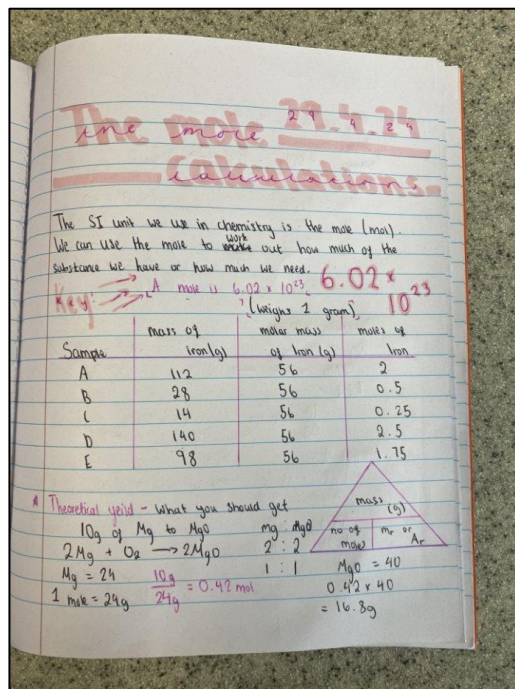 The mole 29.4.24
calculations.
The SI unit we use in chemistry is the mole (mol).
We can use the mole to work out how much of the
substance we have or how much we need. 6.02 x 10^23
Key: A mole is 6.02 x 10^23
(weighs 1 gram)
Sample mass of iron (g) molar mass of Iron (g) moles of Iron
A 112 56 2
B 28 56 0.5
C 14 56 0.25
D 140 56 2.5
E 98 56 1.75
* Theoretical yeild - What you should get
10g of Mg to MgO
2Mg + O2 → 2MgO
Mg = 24
1 mole = 24g
10g/24g = 0.42 mol
mg : MgO
2 : 2
1 : 1
mass (g)
no of moles
mr or Ar
MgO = 40
0.42 x 40
= 16.8g